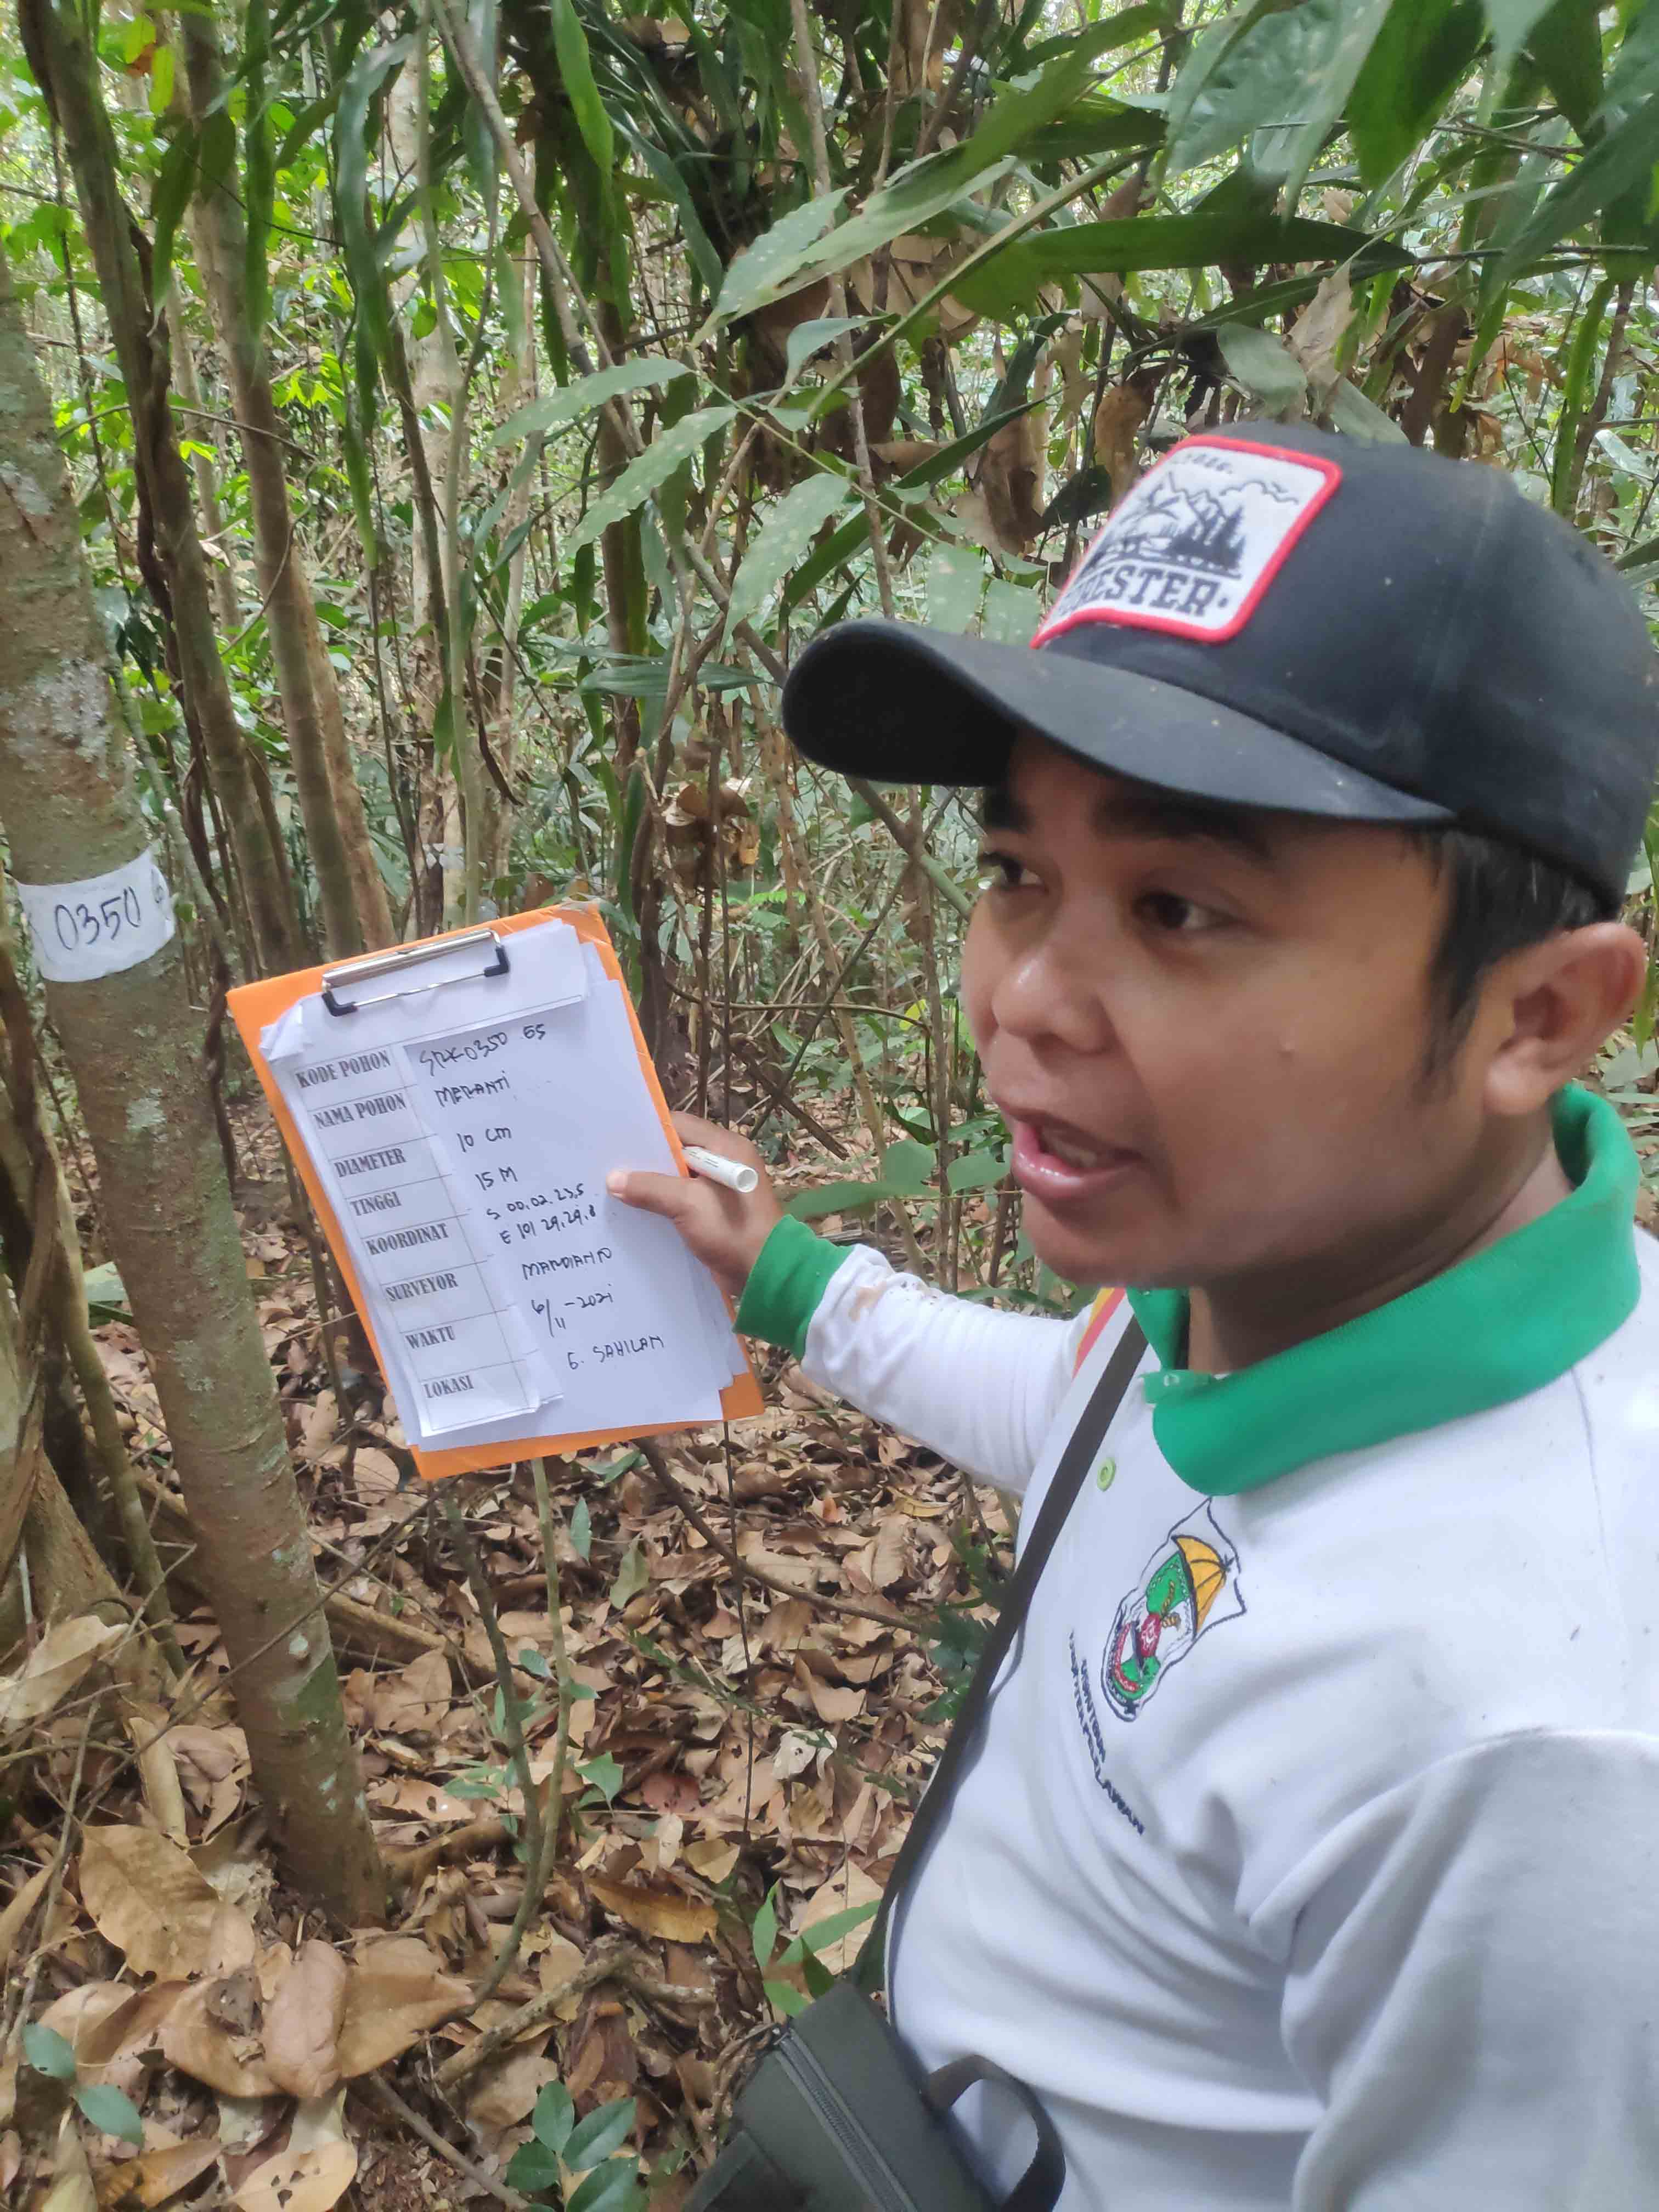 0350
KODE POHON SRK0350 55
NAMA POHON MERANTI
DIAMETER 10 CM
TINGGI 15 M
KOORDINAT S 00.02.23,5
E 101 29.29.8
SURVEYOR MARDIANTO
WAKTU 6/11-2021
LOKASI G. SAHILAN